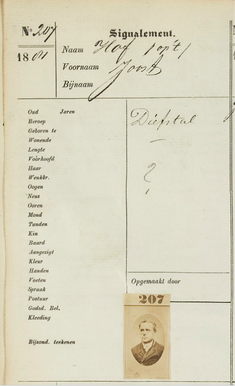 No. 207 Signalement.
1881 Naam Hof (op 't)
Voornaam Joost
Bijnaam
Oud Jaren
Beroep
Geboren te
Wonende
Lengte
Voorhoofd
Haar
Wenkbr.
Oogen
Neus
Ooren
Mond
Tanden
Kin
Baard
Aangezigt
Kleur
Handen
Voeten
Spraak
Postuur
Godsd. Bel.
Kleeding
Bijzond. teekenen
Diefstal
—
?
Opgemaakt door
207